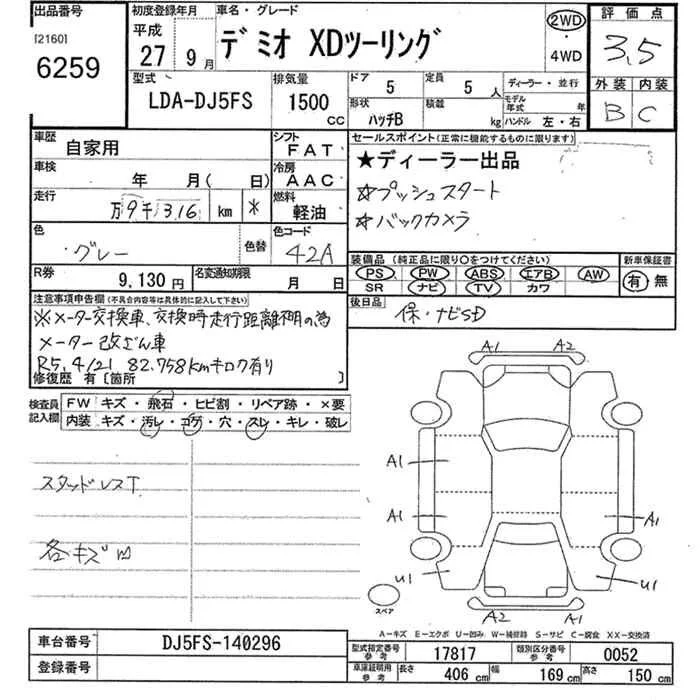 出品番号
[2160]
6259
初度登録年月
平成
27 9月
車名・グレード
デミオ XDツーリング
2WD
・
4WD
評価点
3.5
外装 内装
B C
型式
LDA-DJ5FS
排気量
1500
cc
ドア
5
定員
5 人
形状
ハッチB
積載
kg
ディーラー・並行
モデル年式 年
ハンドル 左・右
車歴
自家用
シフト
FAT
車検
年 月( 日)
冷房
AAC
走行
万9千316 km *
燃料
軽油
色
グレー
色替
色コード
42A
R券
9,130円
名変通知期限
月 日
セールスポイント(正常に機能するものに限ります)
★ディーラー出品
☆プッシュスタート
☆バックカメラ
装備品(純正品に限り○をつけてください)
PS PW ABS エアB AW
SR ナビ TV カワ
新車保証書
有 無
後日品
保・ナビSD
注意事項申告欄(不具合内容等は具体的に記入して下さい)
※メーター交換車、交換時走行距離不明の為
メーター改ざん車
R5.4/21 82.758kmキロク有り
修復歴 有〔箇所 〕
検査員記入欄
FW キズ・飛石・ヒビ割・リペア跡・×要
内装 キズ・汚レ・コゲ・穴・スレ・キレ・破レ
スタッドレスT
各キズ凹
A1 A2
A1
A1
A1
U1
U1
A2 A1
スペア
A-キズ E-エクボ U-凹み W-補修跡 S-サビ C-腐食 XX-交換済
車台番号
DJ5FS-140296
登録番号
型式指定番号
参考
17817
類別区分番号
参考
0052
車庫証明用
参考
長さ
406 cm
幅
169 cm
高さ
150 cm